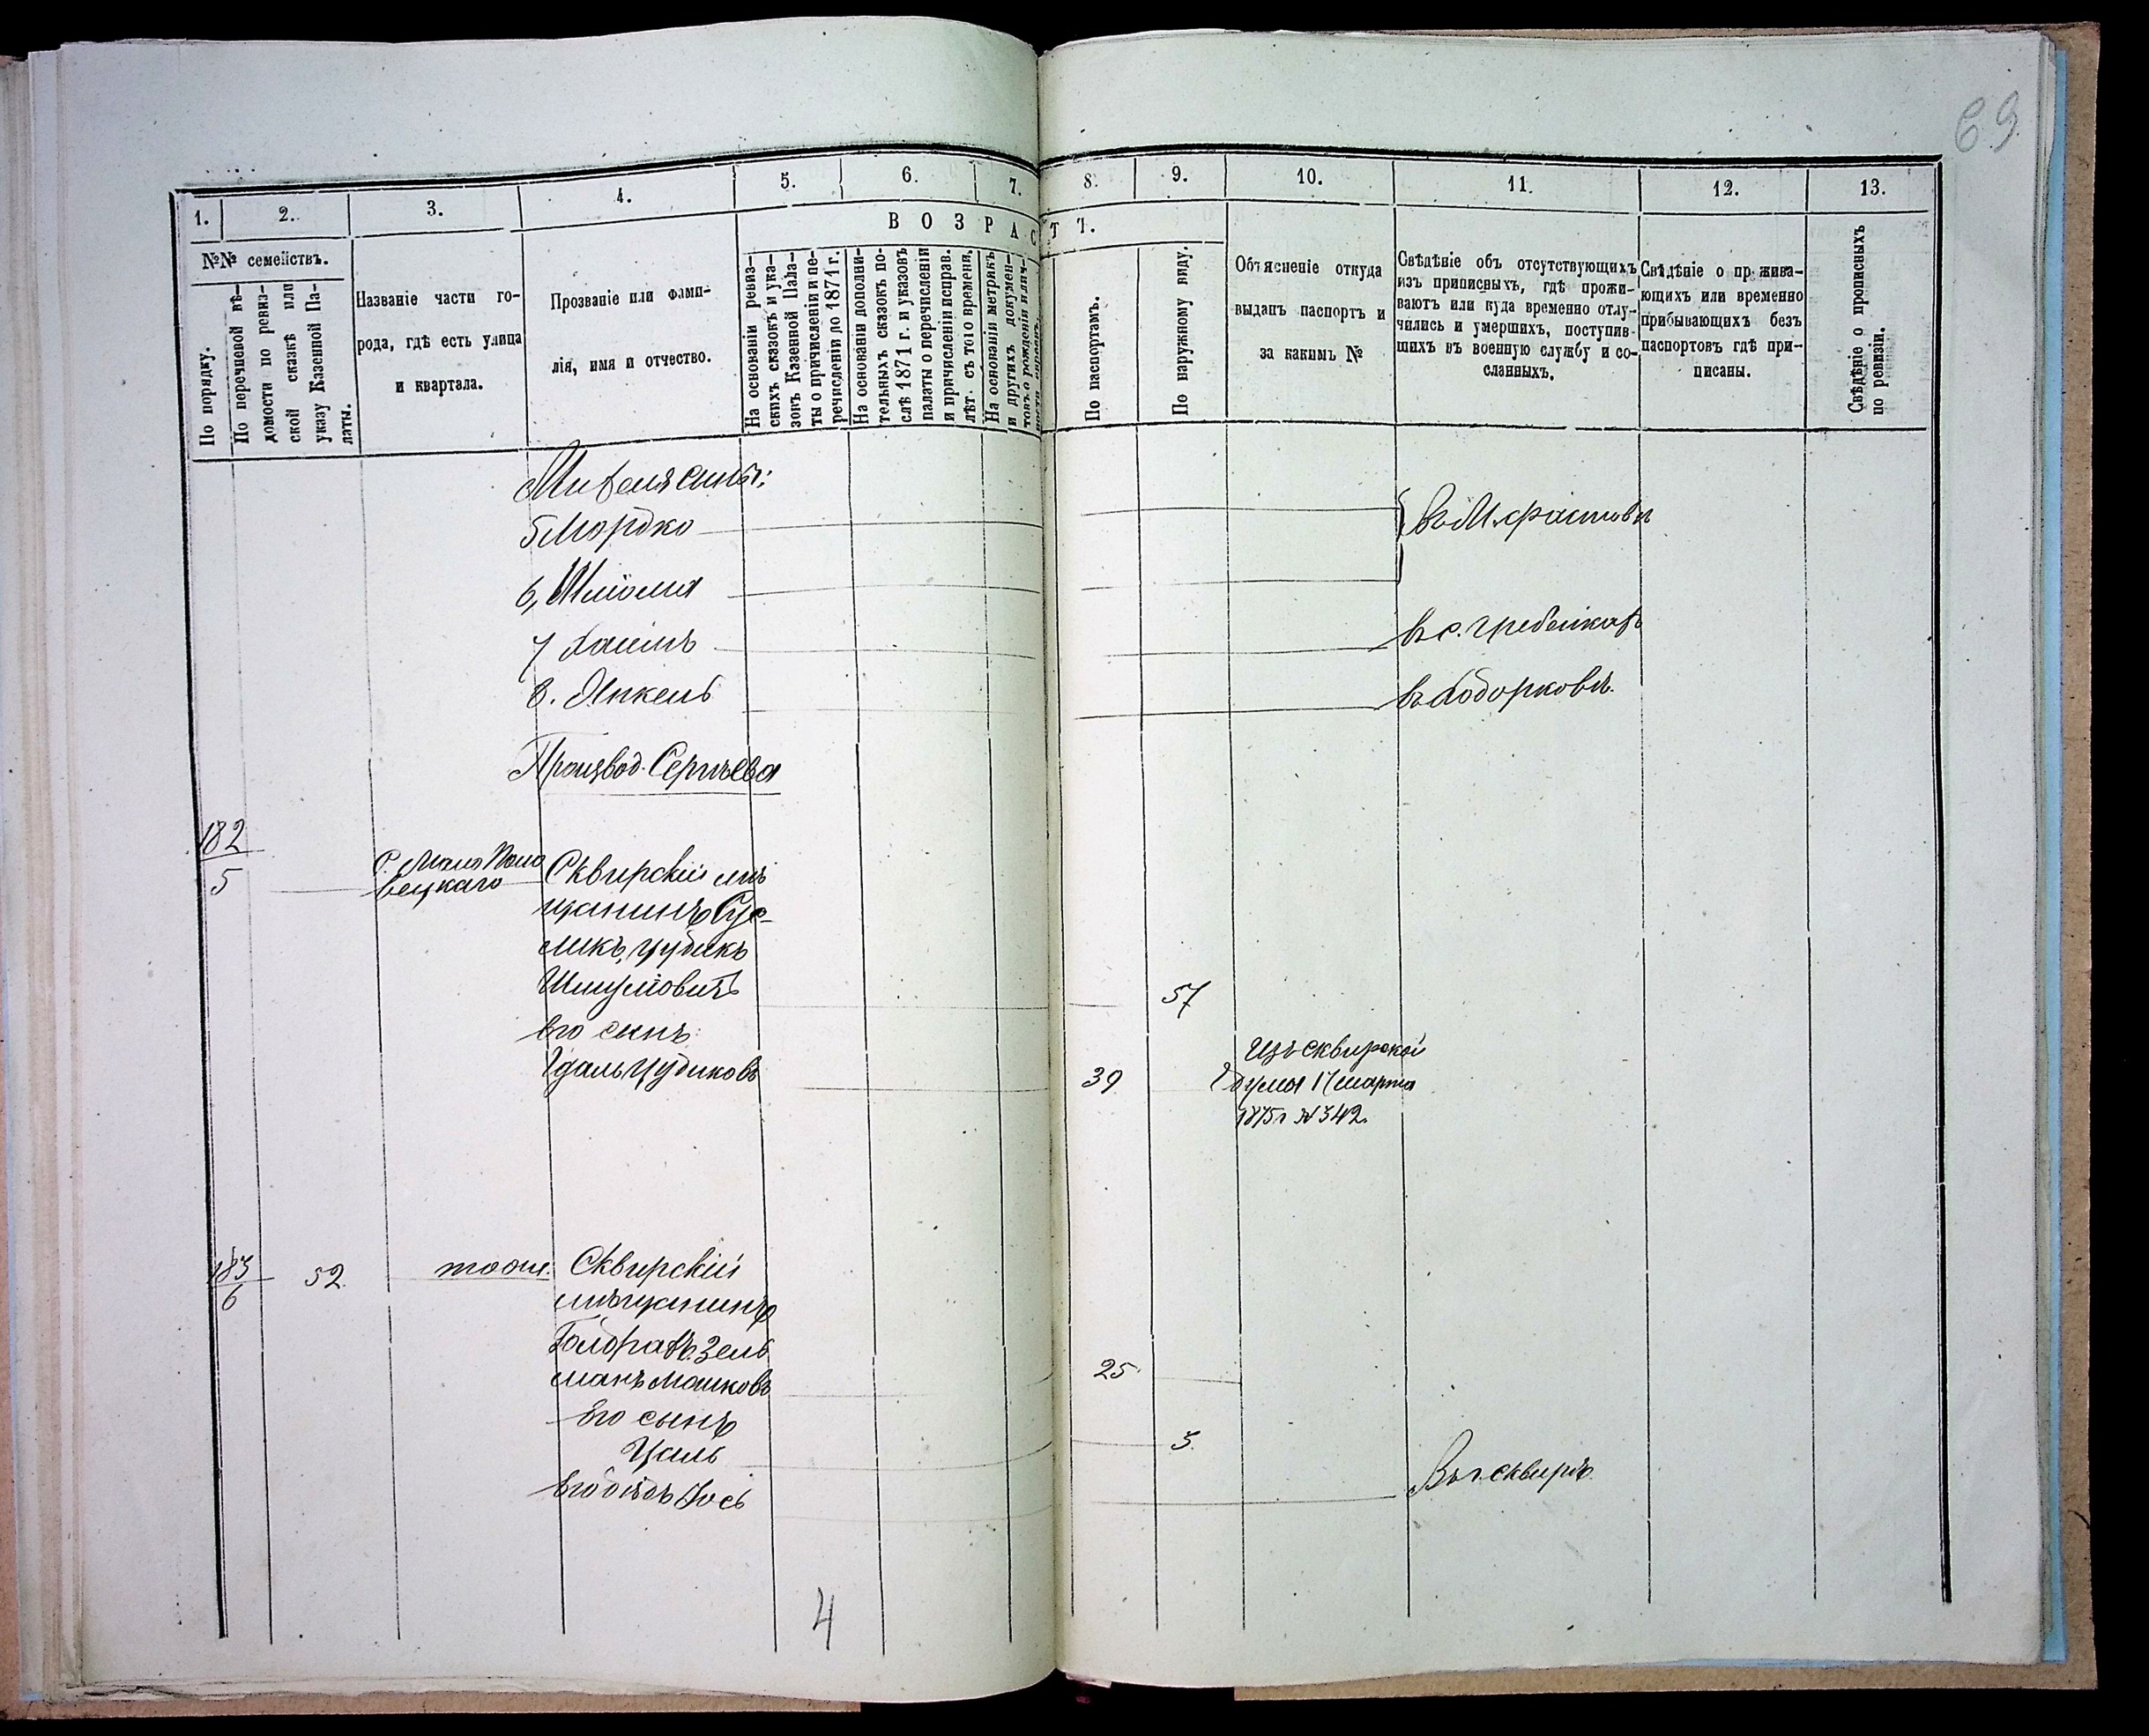 69
1.
2.
3.
4.
5.
6.
7.
8.
9.
10.
11.
12.
13.
ВОЗРАСТЪ.
№№ семействъ.
По порядку.
По перечневой вѣ-
домости по ревиз-
ской сказкѣ или
указу Казенной Па-
латы.
Названіе части го-
рода, гдѣ есть улица
и квартала.
Прозваніе или фами-
лія, имя и отчество.
На основаніи ревиз-
скихъ сказокъ и ука-
зовъ Казенной Пала-
ты о причисленіи и пе-
речисленіи до 1871 г.
На основаніи дополни-
тельныхъ сказокъ по-
слѣ 1871 г. и указовъ
палаты о перечисленіи
и причисленіи исправ.
лѣт. съ того времени.
На основаніи метрикъ
и другихъ докумен-
товъ о рожденіи или
По паспортамъ.
По наружному виду.
Объясненіе откуда
выданъ паспортъ и
за какимъ №
Свѣдѣніе объ отсутствующихъ
изъ приписныхъ, гдѣ прожи-
ваютъ или куда временно отлу-
чились и умершихъ, поступив-
шихъ въ военную службу и со-
сланныхъ.
Свѣдѣніе о прожива-
ющихъ или временно
прибывающихъ безъ
паспортовъ гдѣ при-
писаны.
Свѣдѣніе о прописныхъ
по ревизіи.
сыны:
5 Мордко
въ М. Фастовѣ
6, Шлiома
7 Хаимъ
въ с. Гребенкахъ
8. Янкель
въ Ходорковѣ.
Производ.
182
5
С. Мало Поло
вецкаго
Сквирскій мѣ
щанинъ
Шмулiовичъ
57
Его сынъ
39
Изъ Сквирской
Думы 17 марта
1875 г № 342.
183
6
52
тоже.
Сквирскій
мѣщанинъ
Зель
манъ Мошковъ
25
Его сынъ
5.
Его дѣдъ Іось
Въ г. Сквирѣ
4